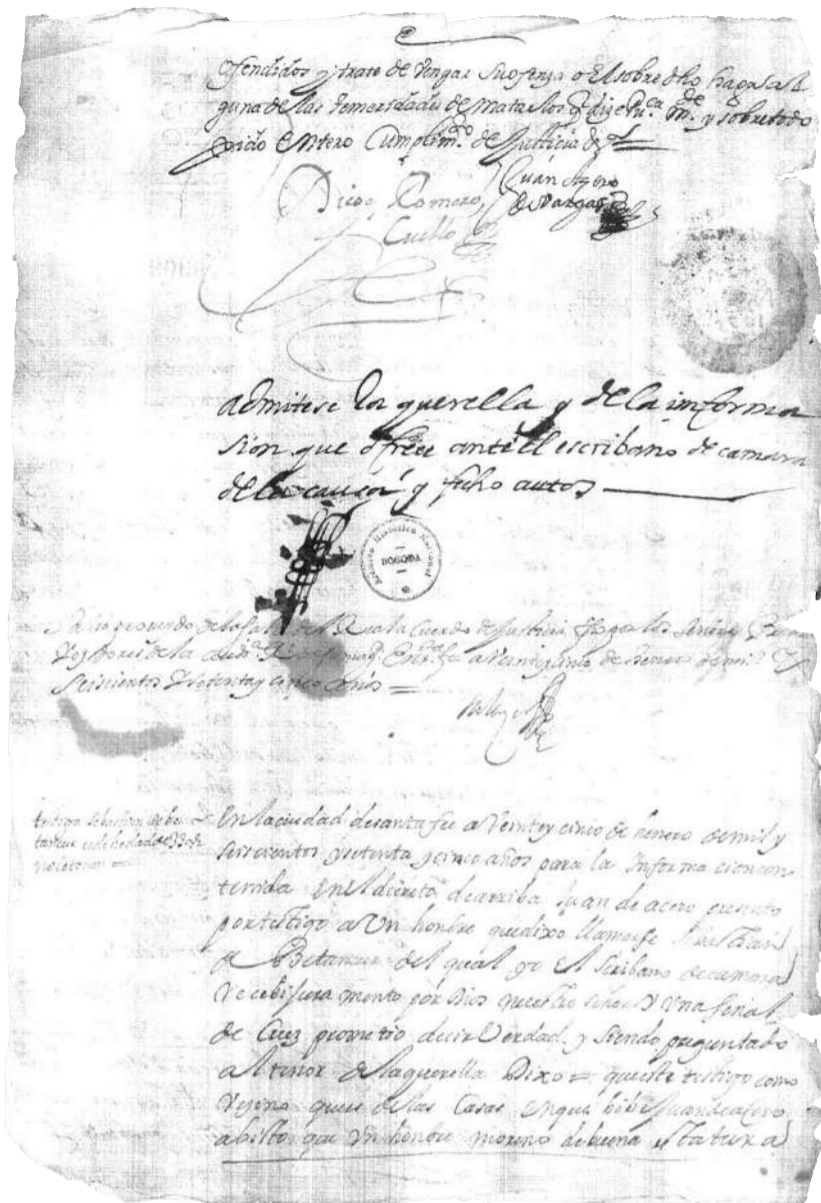 ofendidos y trate de vengar su ofensa o El sobre dho haga al
guna de las temeridades de matarlos q dize Pu.ca m.de y sobre todo
pido Entero Cumplim.to de Justicia &.a
Diego Romero
Cuello
Juan Azero
de Vargas
admitese la querella y de la informa
sion que ofrece ante El escribano de camara
de la causa y fecho autos
Archivo Histórico Nacional
BOGOTA
acuerdo de Justicia los Señores
Veynte de henero de mill y
Seiscientos y setenta y cinco años =
testigo sebastian de be
tancur
En la ciudad de santa fee a Veinte y cinco de henero de mil y
seiscientos y setenta y cinco años para la Informa cion con
tenida En El decreto de arriba Juan de acero presento
por testigo a Un honbre que dixo llamarse Sebastian
de Betancur del qual yo El scribano de camara
Recebi jura mento por Dios nuestro señor y Una señal
de Cruz prometio decir Verdad y siendo preguntado
al tenor de la querella Dixo = que este testigo como
Vezino que es de las Casas en que bibe Juan de acero
a bisto que Un honbre moreno de buena estatura